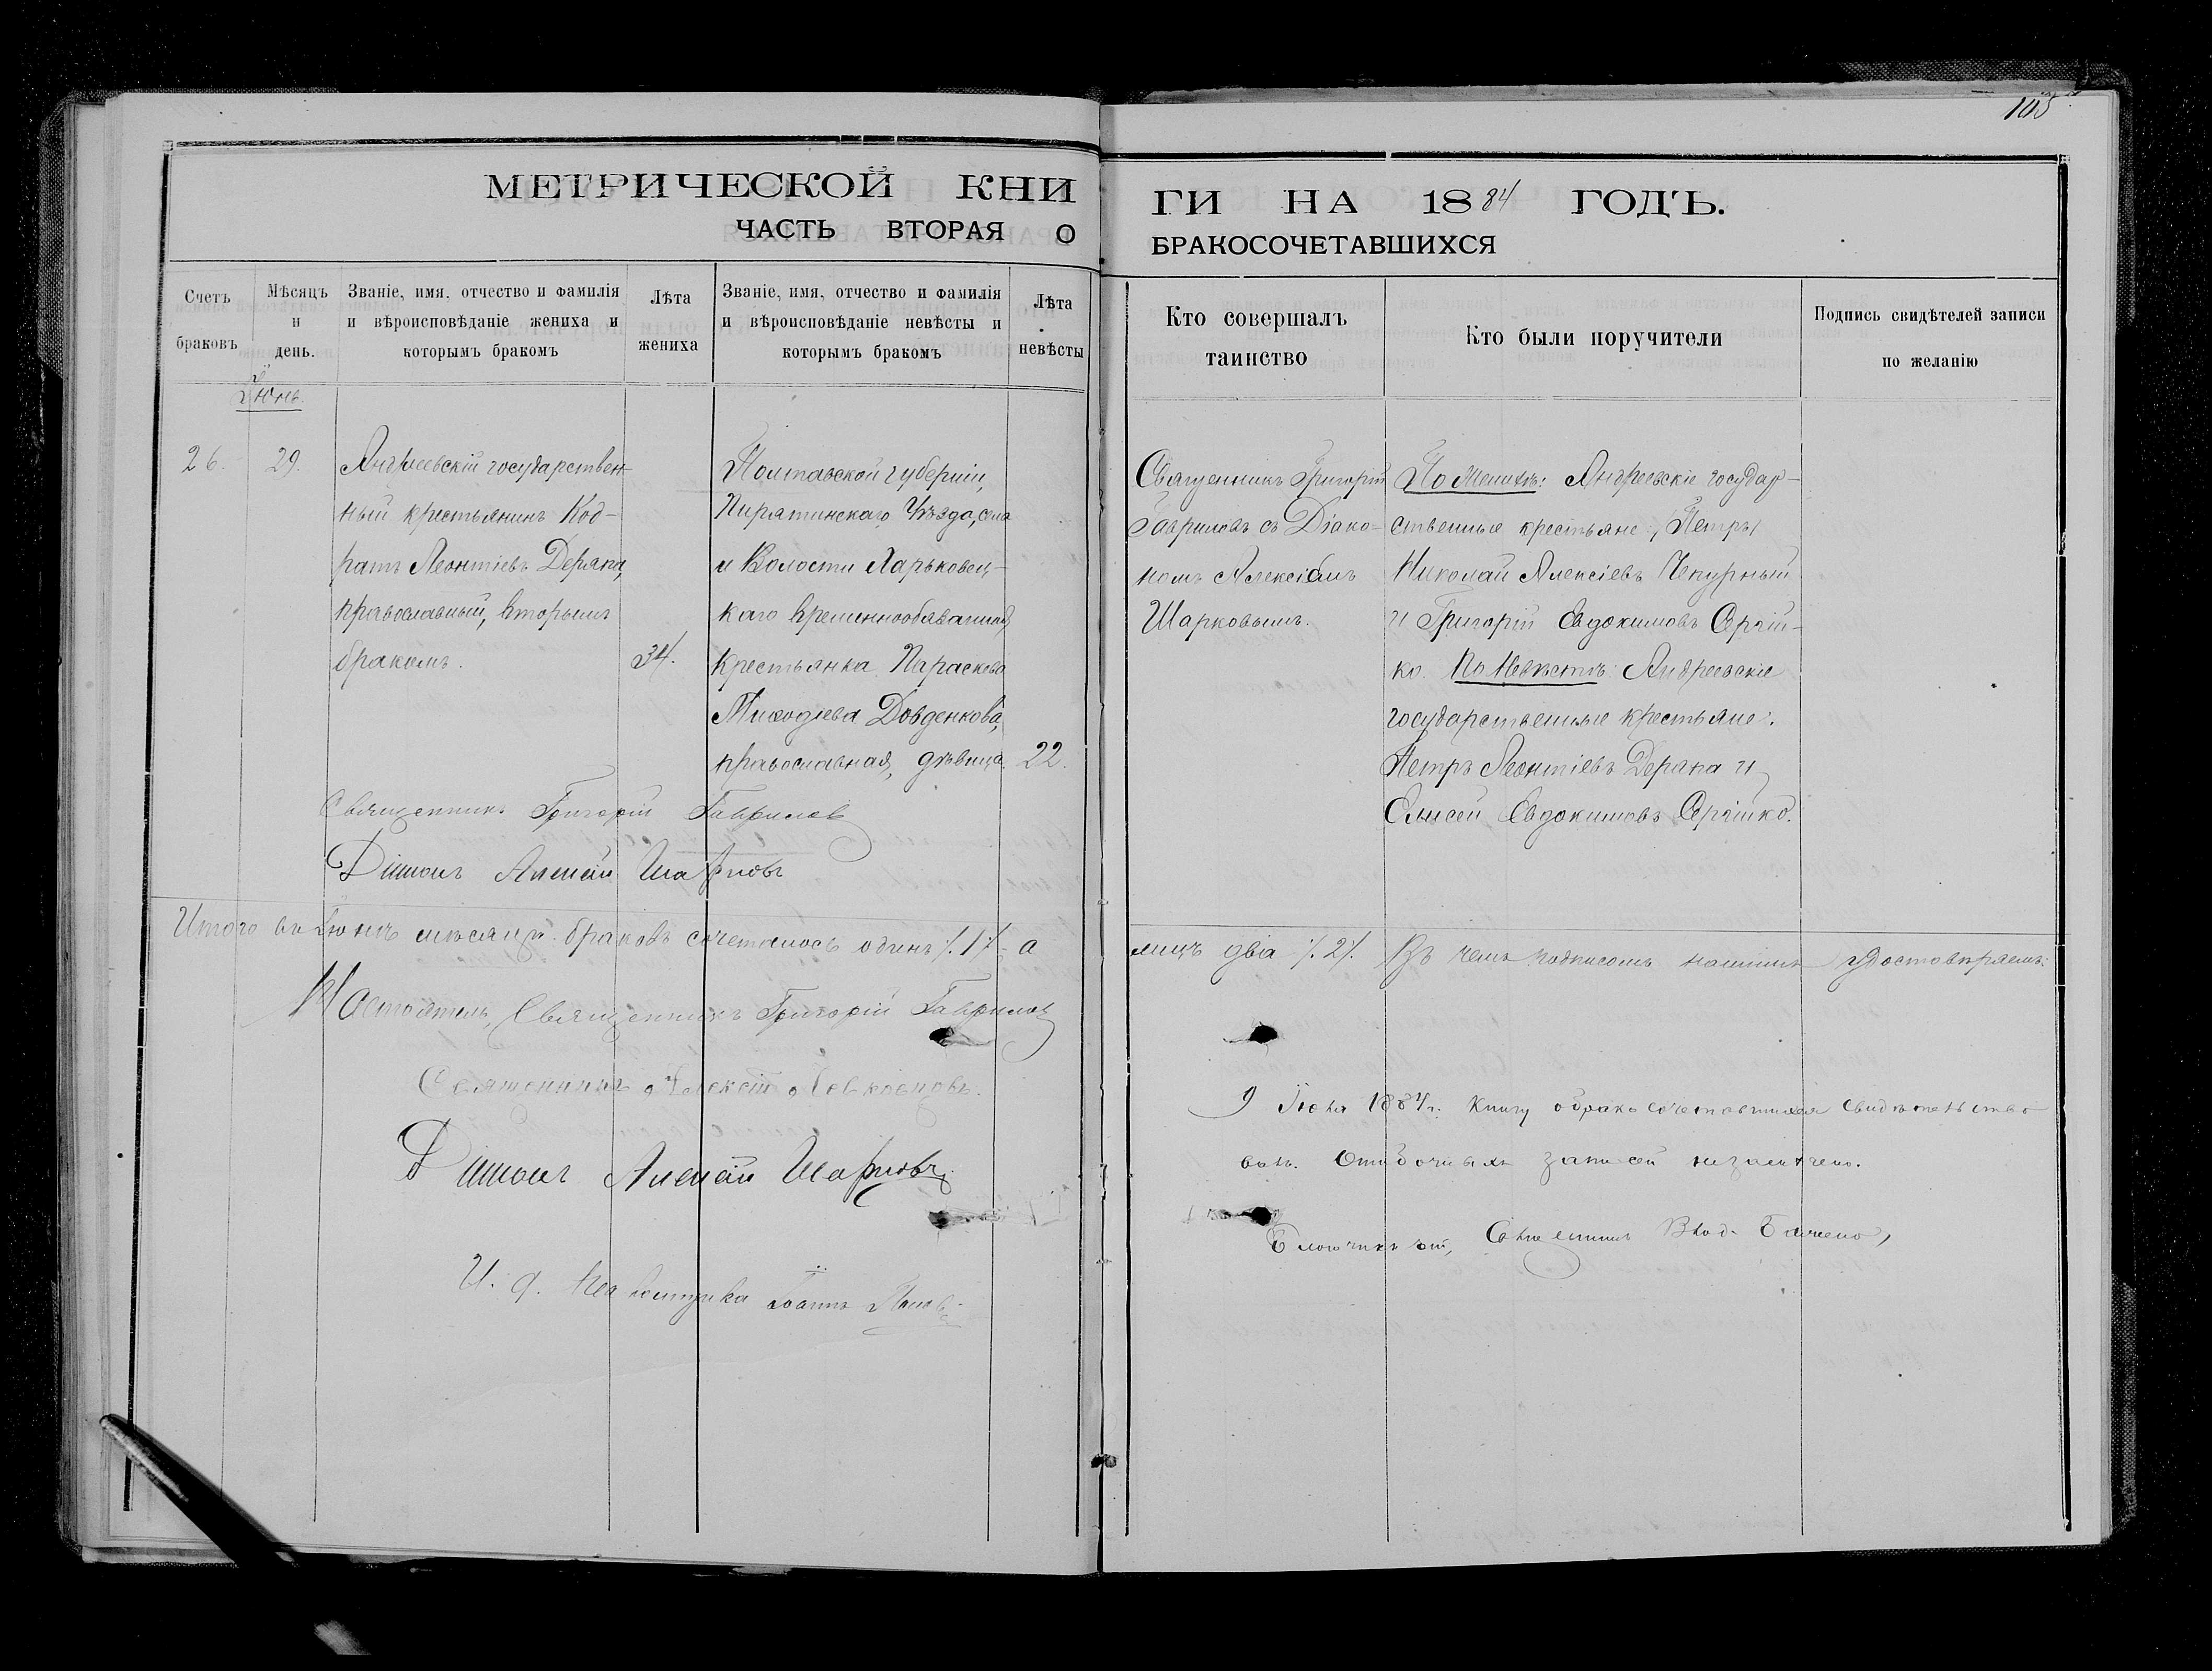 105
МЕТРИЧЕСКОЙ КНИ
ГИ НА 1884 ГОДЪ.
ЧАСТЬ ВТОРАЯ О
БРАКОСОЧЕТАВШИХСЯ
Счетъ браковъ
Мѣсяцъ и день.
Званіе, имя, отчество и фамилія
и вѣроисповѣданіе жениха и
которымъ бракомъ
Лѣта
жениха
Званіе, имя, отчество и фамилія
и вѣроисповѣданіе невѣсты и
которымъ бракомъ
Лѣта
невѣсты
Кто совершалъ
таинство
Кто были поручители
Подпись свидѣтелей записи
по желанію
Іюнь.
26.
29.
Андреевскій государствен-
ный крестьянинъ Код-
ратъ Леонтіевъ Деряка,
православный, вторымъ
бракомъ.
34.
Полтавской губерніи,
Пирятинскаго Уѣзда, села
и Волости Харьковец-
каго временнообязанная
крестьянка Параскева
Довденкова,
православная, дѣвица.
22.
Священникъ Григорій
Гавриловъ съ Діако-
номъ Алексіемъ
Шарковымъ.
По Женихѣ: Андреевскіе государ-
ственные крестьяне: /Петръ/
Николай Алексіевъ Чепурный
и Григорій Евдокимовъ
ко. По Невѣстѣ: Андреевскіе
государственные крестьяне.
Петръ Леонтіевъ Дерака и
Елисей Евдокимовъ
Священникъ Григорій Гавриловъ
Діаконъ Алексій Шарковъ
Итого въ Іюнѣ мѣсяцѣ браковъ сочеталось одинъ /.1/. а
лицъ два /.2/. Въ чемъ подписомъ нашимъ удостовѣряемъ:
Настоятель, Священникъ Григорій Гавриловъ
Священникъ Алексій
Діаконъ Алексій Шарковъ.
И. д. Псаломщика Іоаннъ Поповъ
9 1884 г. Книгу о бракосочетавшихся свидѣтельство
валъ. Ошибочныхъ записей незамѣчено.
Благочинный, Священникъ